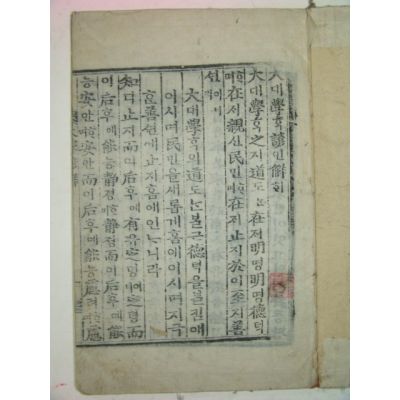 大대學ᄒᆞᆨ諺언解ᄒᆡ
大대學ᄒᆞᆨ之지道도ᄂᆞᆫ在ᄌᆡ明명明명德덕
ᄒᆞ며在ᄌᆡ親신民민ᄒᆞ며在ᄌᆡ止지於어至지善
션이니라
大대學ᄒᆞᆨ의道도ᄂᆞᆫ불근德덕을불킴애
이시며民민을새롭게홈애이시며지극
ᄒᆞᆫ善션에止지홈애인ᄂᆞ니라
知디止지而이后후에有유定뎡이니定뎡而
이后후에能능靜졍ᄒᆞ며靜졍而이后후에能
능安안ᄒᆞ며安안而이后후에能능慮려ᄒᆞ며慮